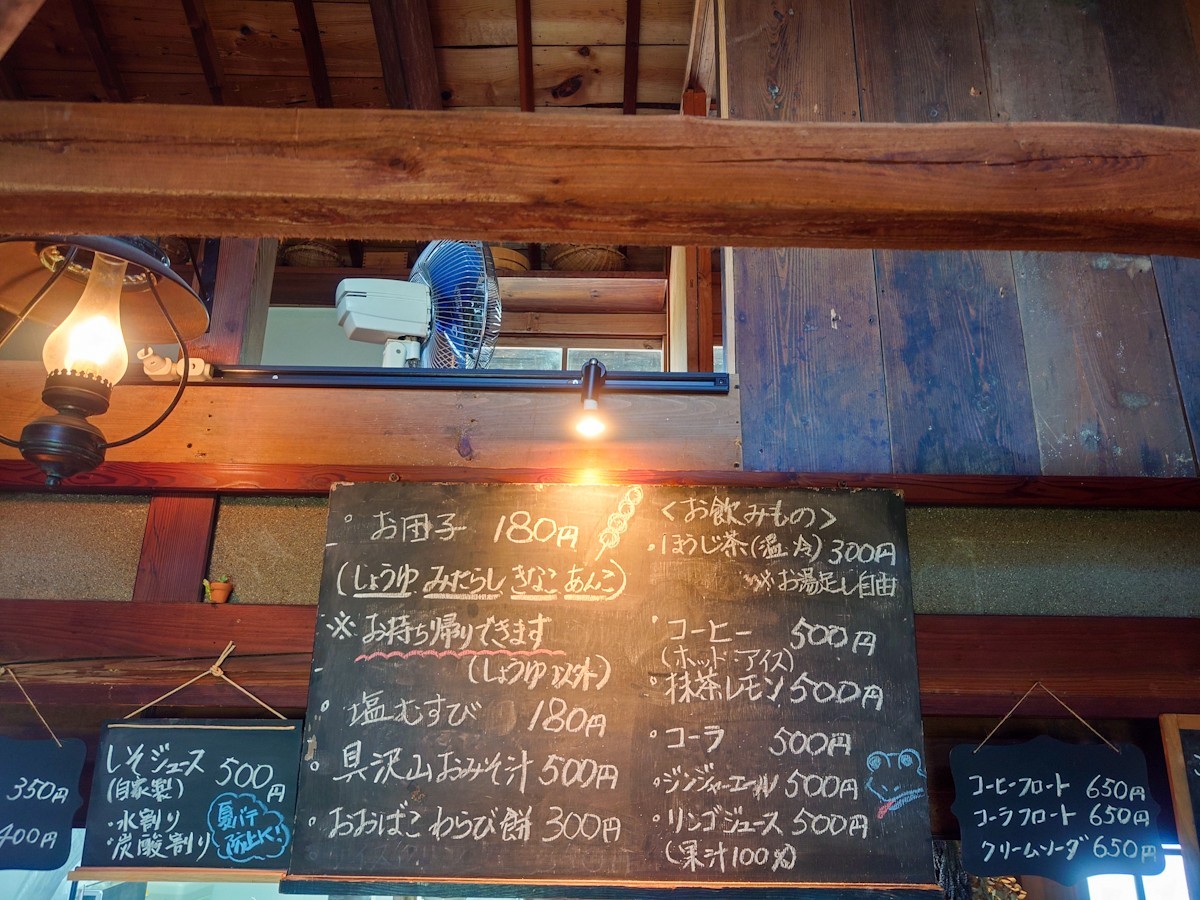 350円
400円
しそジュース 500円
(自家製)
・水割り
・炭酸割り
夏バテ
防止!
お団子 180円
(しょうゆ みたらし きなこ あんこ)
※ お持ち帰りできます
(しょうゆ以外)
塩むすび 180円
具沢山おみそ汁 500円
おおばこ わらび餅 300円
<お飲みもの>
・ほうじ茶(温・冷) 300円
※お湯足し自由
・コーヒー 500円
(ホット・アイス)
・抹茶レモン 500円
・コーラ 500円
・ジンジャーエール 500円
・リンゴジュース 500円
(果汁100%)
コーヒーフロート 650円
コーラフロート 650円
クリームソーダ 650円